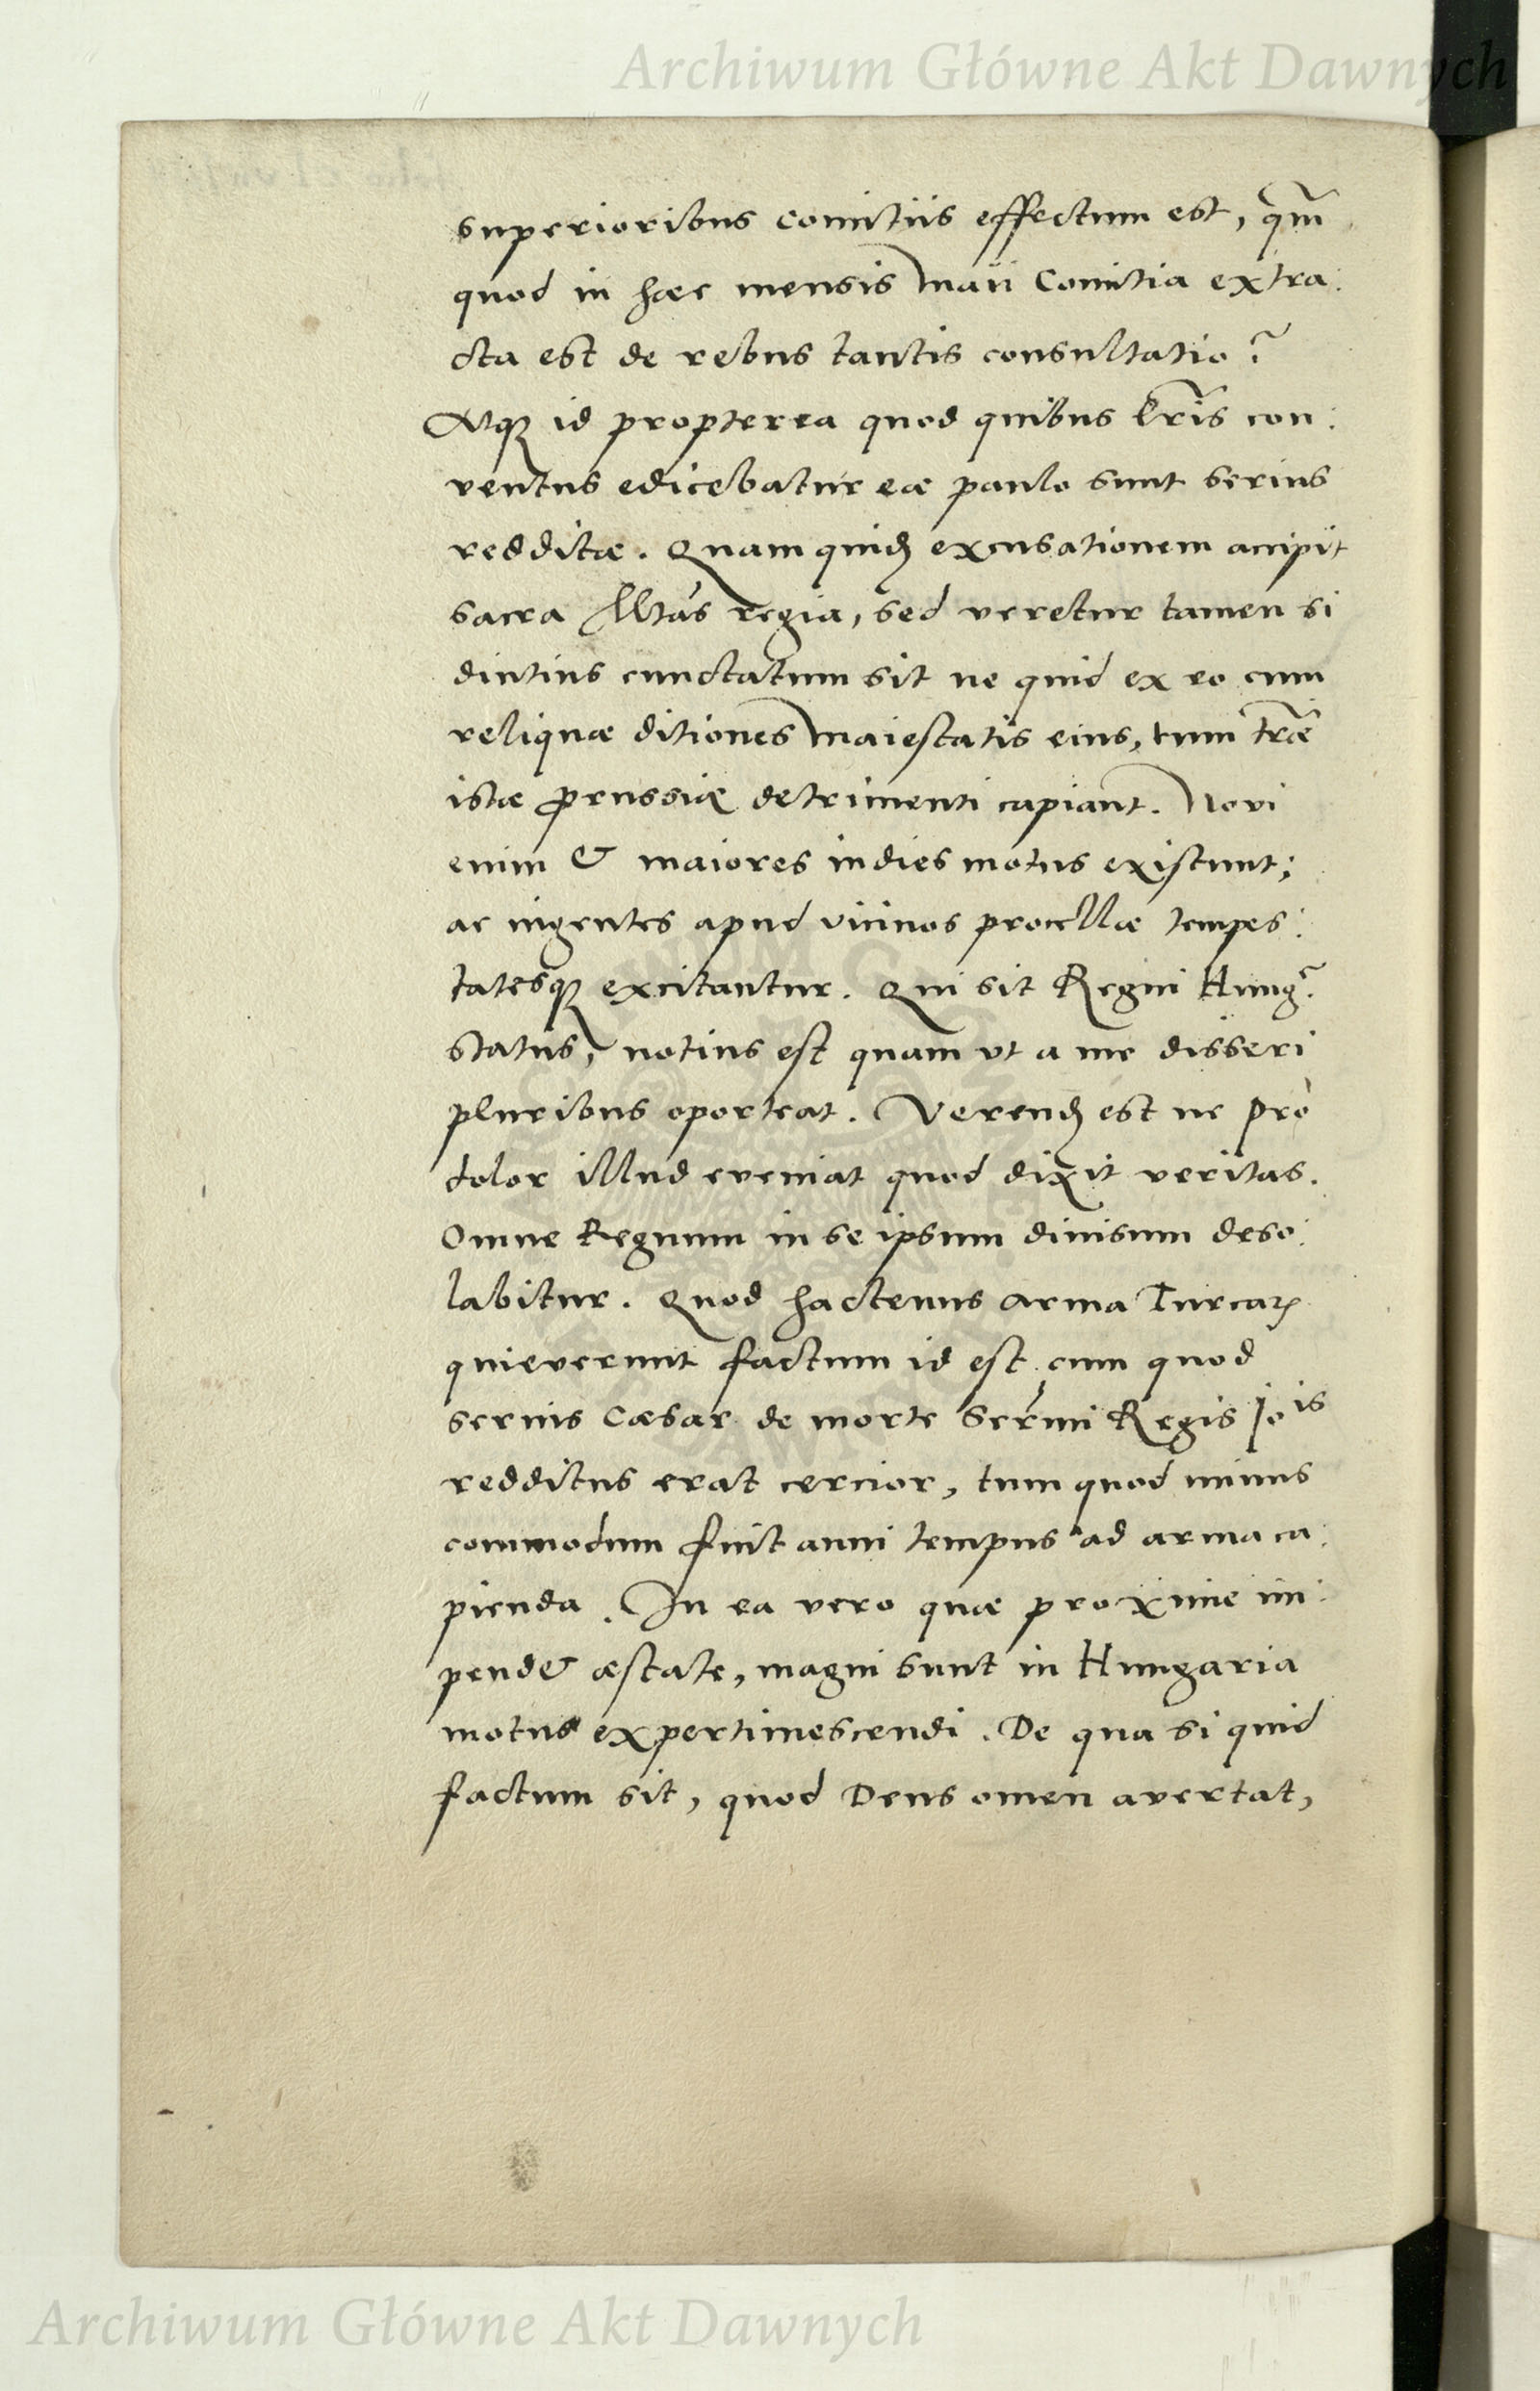 Archiwum Główne Akt Dawnych
superioribus comitiis effectum est, qm̃
quod in hæc mensis Maii Comitia extra:
cta est de rebus tantis consultatio?
Atq3 id propterea quod quibus lr̃is con:
ventus edicebatur eæ paulo sunt serius
redditæ. Quam quidẽ excusationem accipit
sacra Mtas regia, sed veretur tamen si
diutius cunctatum sit ne quid ex eo cum
reliquæ ditiones Maiestatis eius, tum træ
istæ Prussiæ detrimenti capiant. Novi
enim & maiores indies motus existunt;
ac ingentes apud vicinos procellæ tempes:
tatesq3 excitantur. Qui sit Regni Hung.
status, notius est quam ut a me disseri
pluribus oporteat. Verendũ est ne prò
dolor illud eveniat quod dixit veritas.
Omne Regnum in se ipsum divisum deso:
labitur. Quod hactenus arma Turcaꝝ
quieverunt factum id est cum quod
serius Cæsar de morte Sermi Regis Jois
redditus erat cercior, tum quod minus
commodum fuit anni tempus ad arma ca:
pienda. In ea vero quæ proxime im:
pendet æstate, magni sunt in Hungaria
motus expertimescendi. De qua si quid
factum sit, quod Deus omen avertat,
Archiwum Główne Akt Dawnych